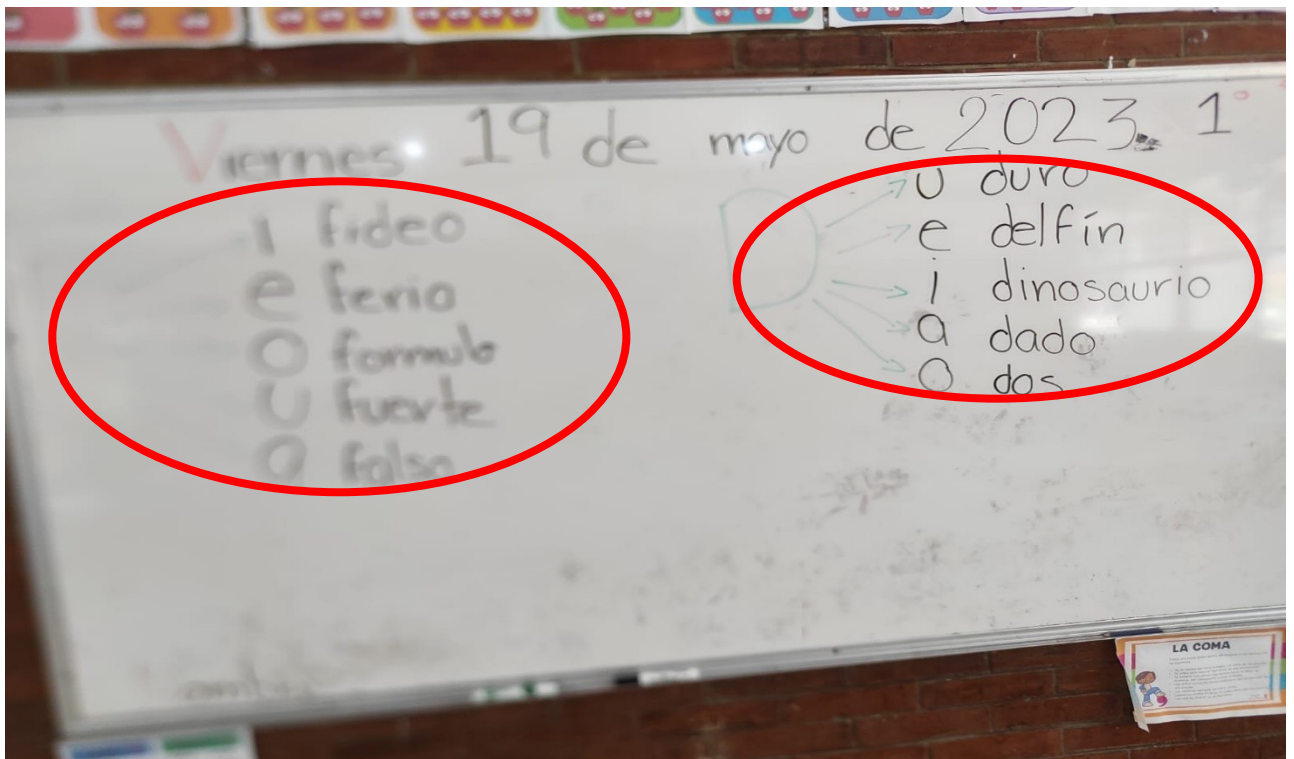 Viernes 19 de mayo de 2023. 1°
i fideo
e feria
o formula
U fuerte
a
D
U duro
e delfín
i dinosaurio
a dado
O dos
LA COMA